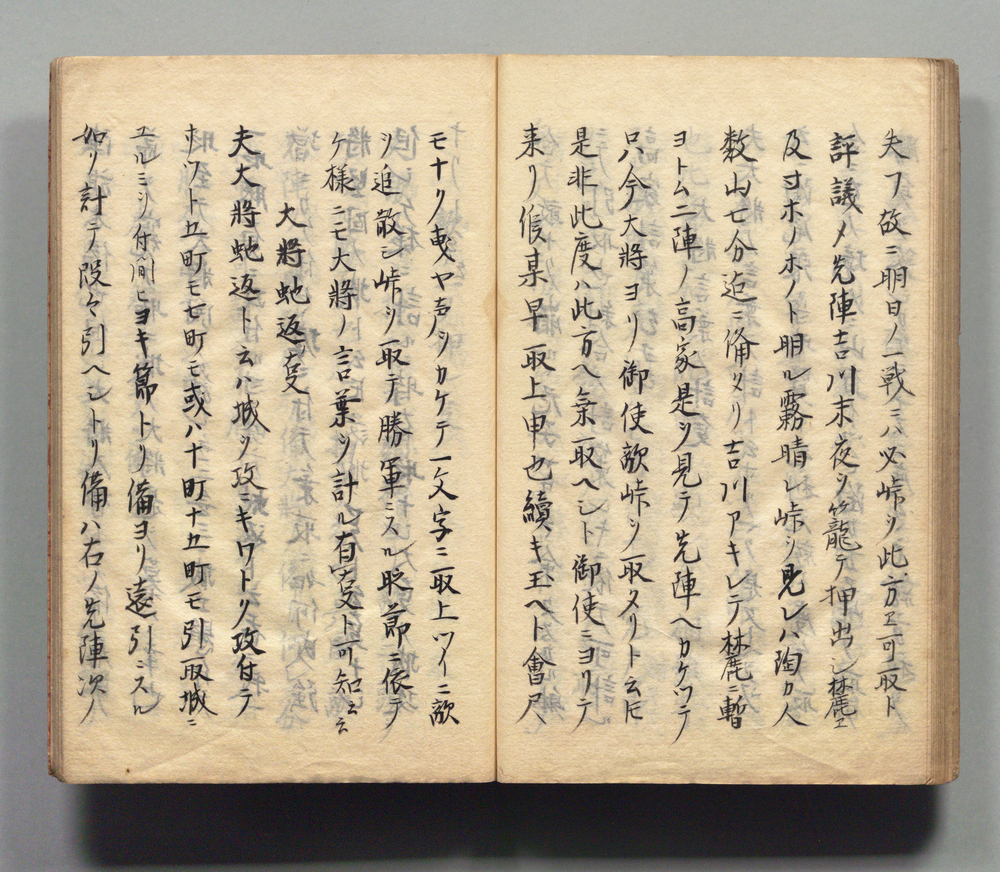 失フ故ニ明日ノ一戦ニハ必峠ヲ此方エ可取ト
評議メ先陣吉川末夜ヲ籠テ押出シ麓エ
及寸ホノホノト明ル霧晴レ峠ヲ見レハ陶カ人
数山七分迄ニ備タリ吉川アキレテ麓ニ暫
ヨトム二陣ノ高家是ヲ見テ先陣ヘカケツテ
只今大将ヨリ御使敵峠ヲ取タリト云
是非此度ハ此方ヘ乗取ヘシト御使ニヨリテ
来リ候某早取上申也續キ玉ヘト會尺
モナク曵ヤ声ヲカケテ一文字ニ取上ツイニ敵
ヲ追散シ峠ヲ取テ勝軍ニスル時節ニ依テ
ケ様ニモ大將ノ言葉ヲ計ル有叓ト可知云云
大將虵返叓
夫大將虵返ト云ハ城ヲ攻ニキワトク攻付テ
ホツト五町モ七町モ或ハ十町十五町モ引取城ニ
エルミヲ付開ヒヨキ節トリ備ヨリ遠引ニスル
如リ計テ段々引ヘシトリ備ハ右ノ先陣次ハ